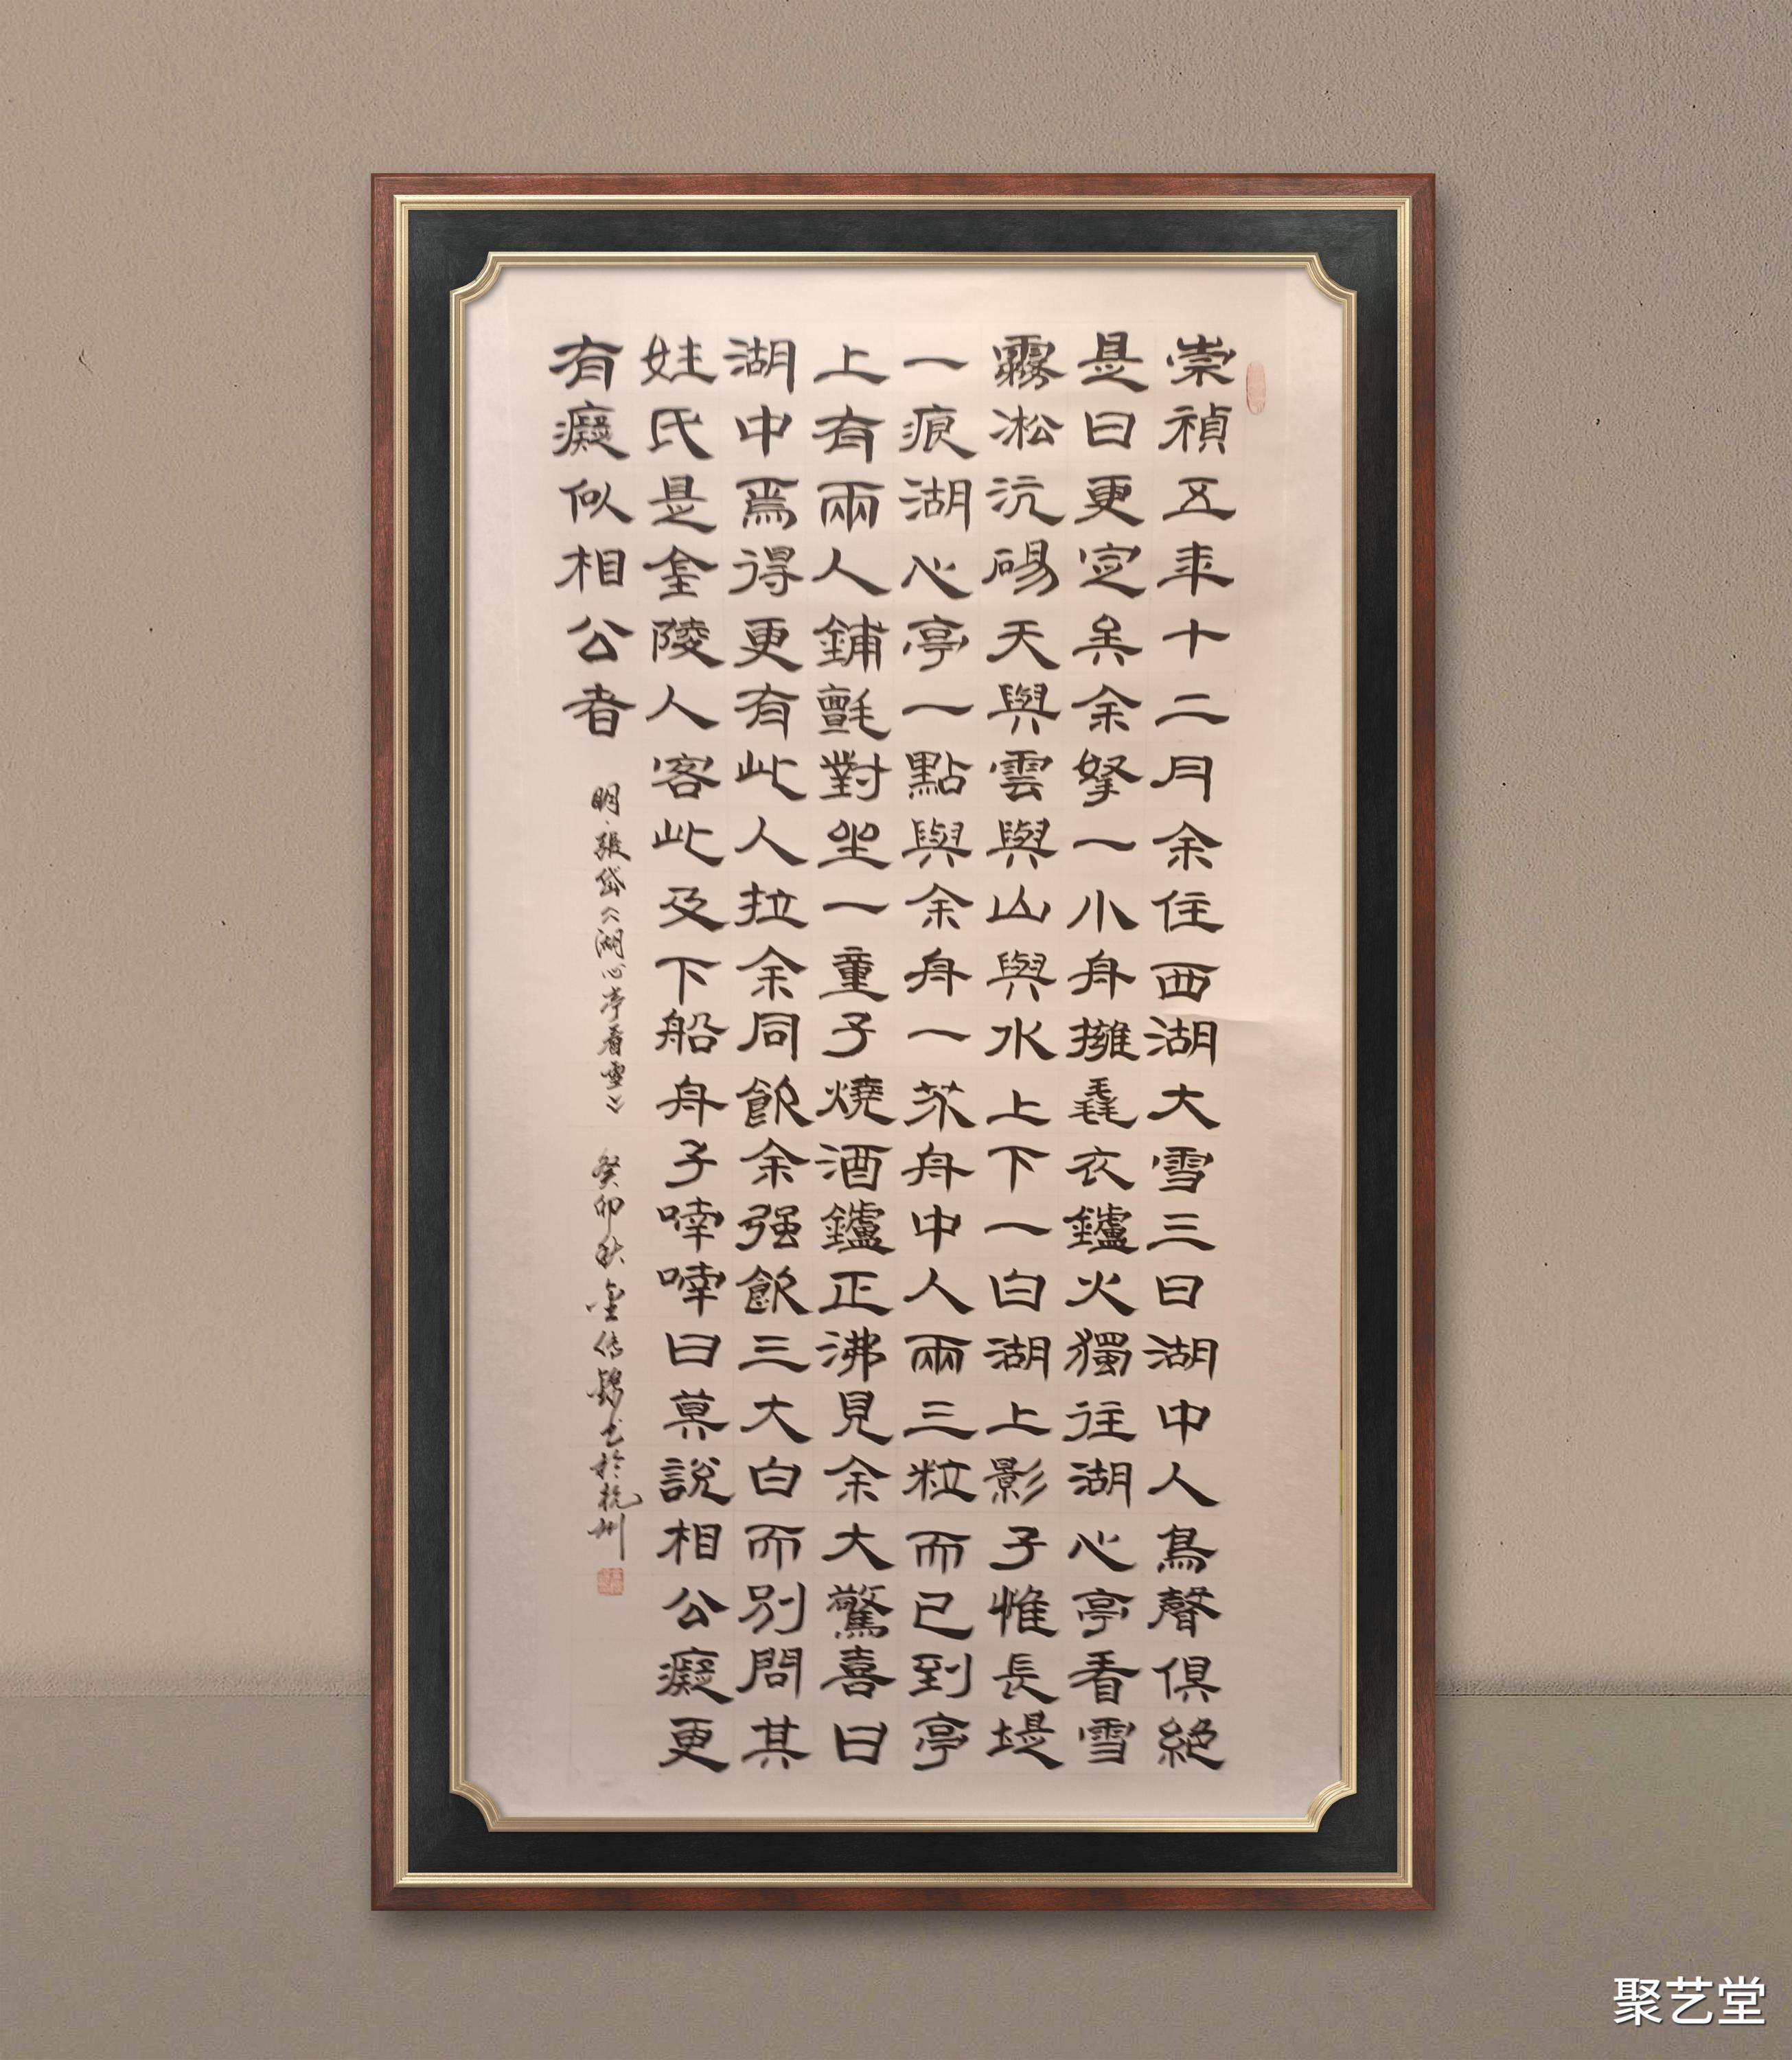 崇禎五年十二月余住西湖大雪三日湖中人鳥聲俱絕
是日更定矣余拏一小舟擁毳衣鑪火獨往湖心亭看雪
霧凇沆碭天與雲與山與水上下一白湖上影子惟長堤
一痕湖心亭一點與余舟一芥舟中人兩三粒而已到亭
上有兩人鋪氈對坐一童子燒酒鑪正沸見余大驚喜曰
湖中焉得更有此人拉余同飲余强飲三大白而別問其
姓氏是金陵人客此及下船舟子喃喃曰莫說相公癡更
有癡似相公者
明·張岱《湖心亭看雪》 癸卯秋金传书於杭州
聚艺堂